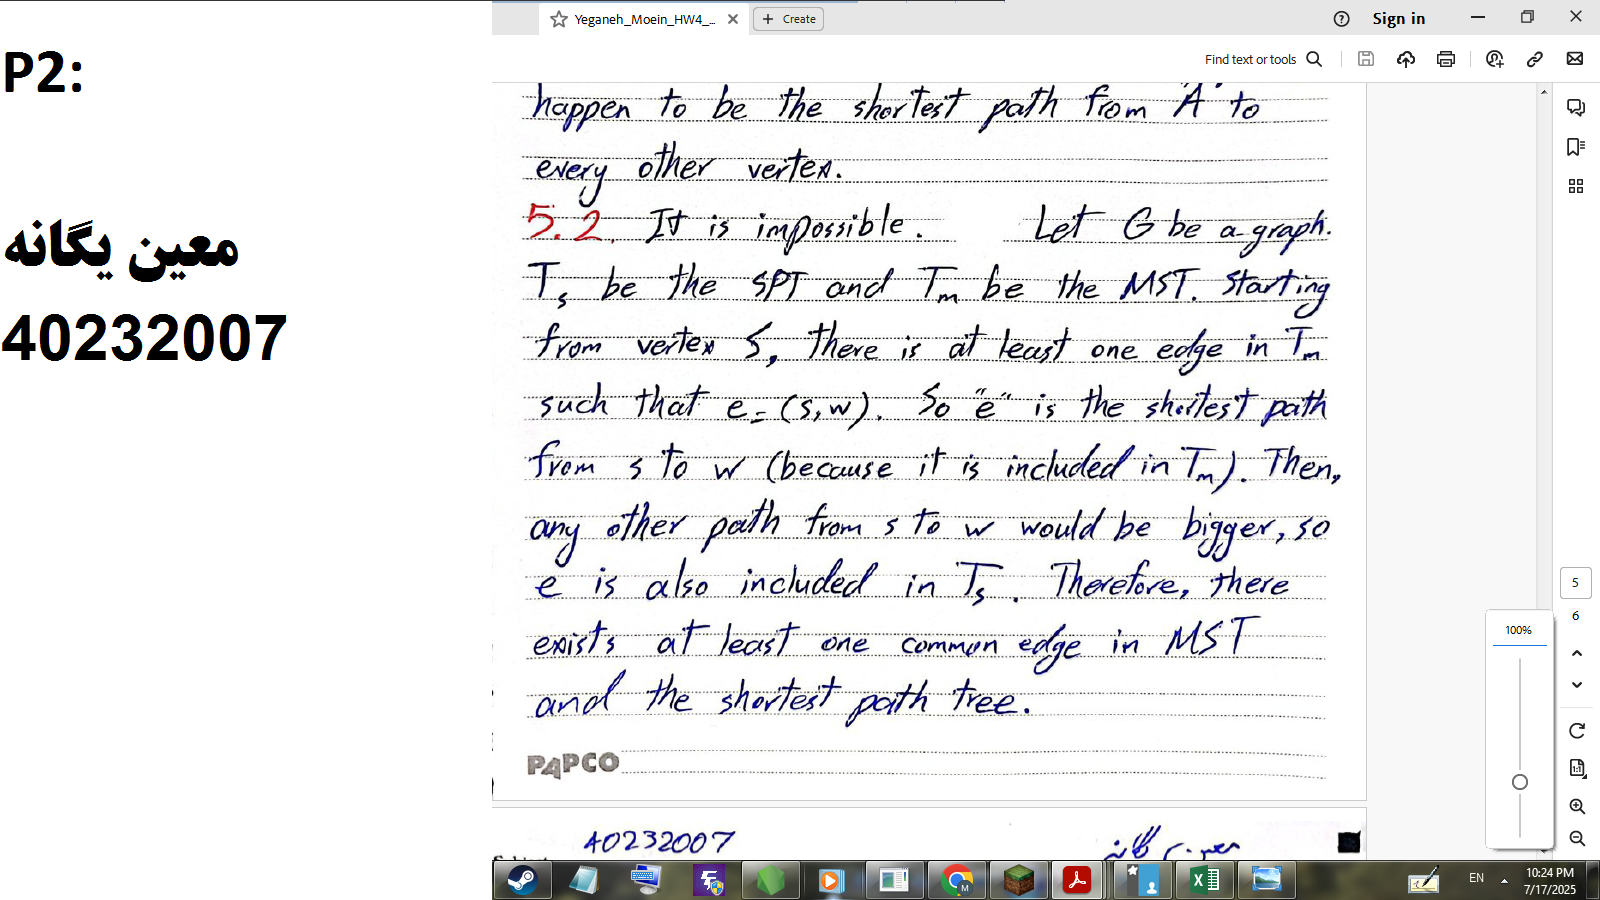 P2:
معین یگانه
40232007
Yeganeh_Moein_HW4_...
Create
Sign in
Find text or tools
happen to be the shortest path from "A" to
every other vertex.
5.2. It is impossible. Let G be a graph.
Ts be the SPT and Tm be the MST. Starting
from vertex S, there is at least one edge in Tm
such that e = (s,w). So "e" is the shortest path
from s to w (because it is included in Tm). Then,
any other path from s to w would be bigger, so
e is also included in Ts. Therefore, there
exists at least one common edge in MST
and the shortest path tree.
PAPCO
40232007
5
6
100%
EN
10:24 PM
7/17/2025